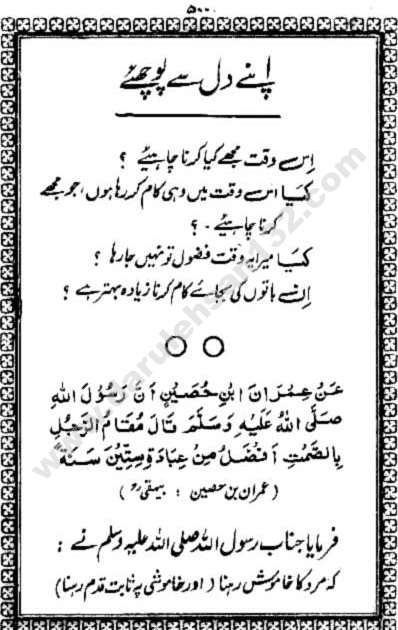 ۵۰۰
اپنے دل سے پوچھئے
اس وقت مجھے کیا کرنا چاہیئے ؟
کیا اس وقت میں وہی کام کر رہا ہوں، جو مجھے
کرنا چاہیئے ۔ ؟
کیا میرا یہ وقت فضول تو نہیں جا رہا ؟
ان باتوں کی بجائے کام کرنا زیادہ بہتر ہے ؟
عَنْ عِمْرَانَ ابْنِ حُصَيْنٍ اَنَّ رَسُوْلَ اللهِ
صَلَّى اللهُ عَلَيْهِ وَسَلَّمَ قَالَ مُقَامُ الرَّجُلِ
بِالصَّمْتِ اَفْضَلُ مِنْ عِبَادَةِ سِتِّيْنَ سَنَةً
(عمران بن حصین : بیہقی رح)
فرمایا جناب رسول اللہ صلی اللہ علیہ وسلم نے :
کہ مرد کا خاموش رہنا (اور خاموشی پہ ثابت قدم رہنا)